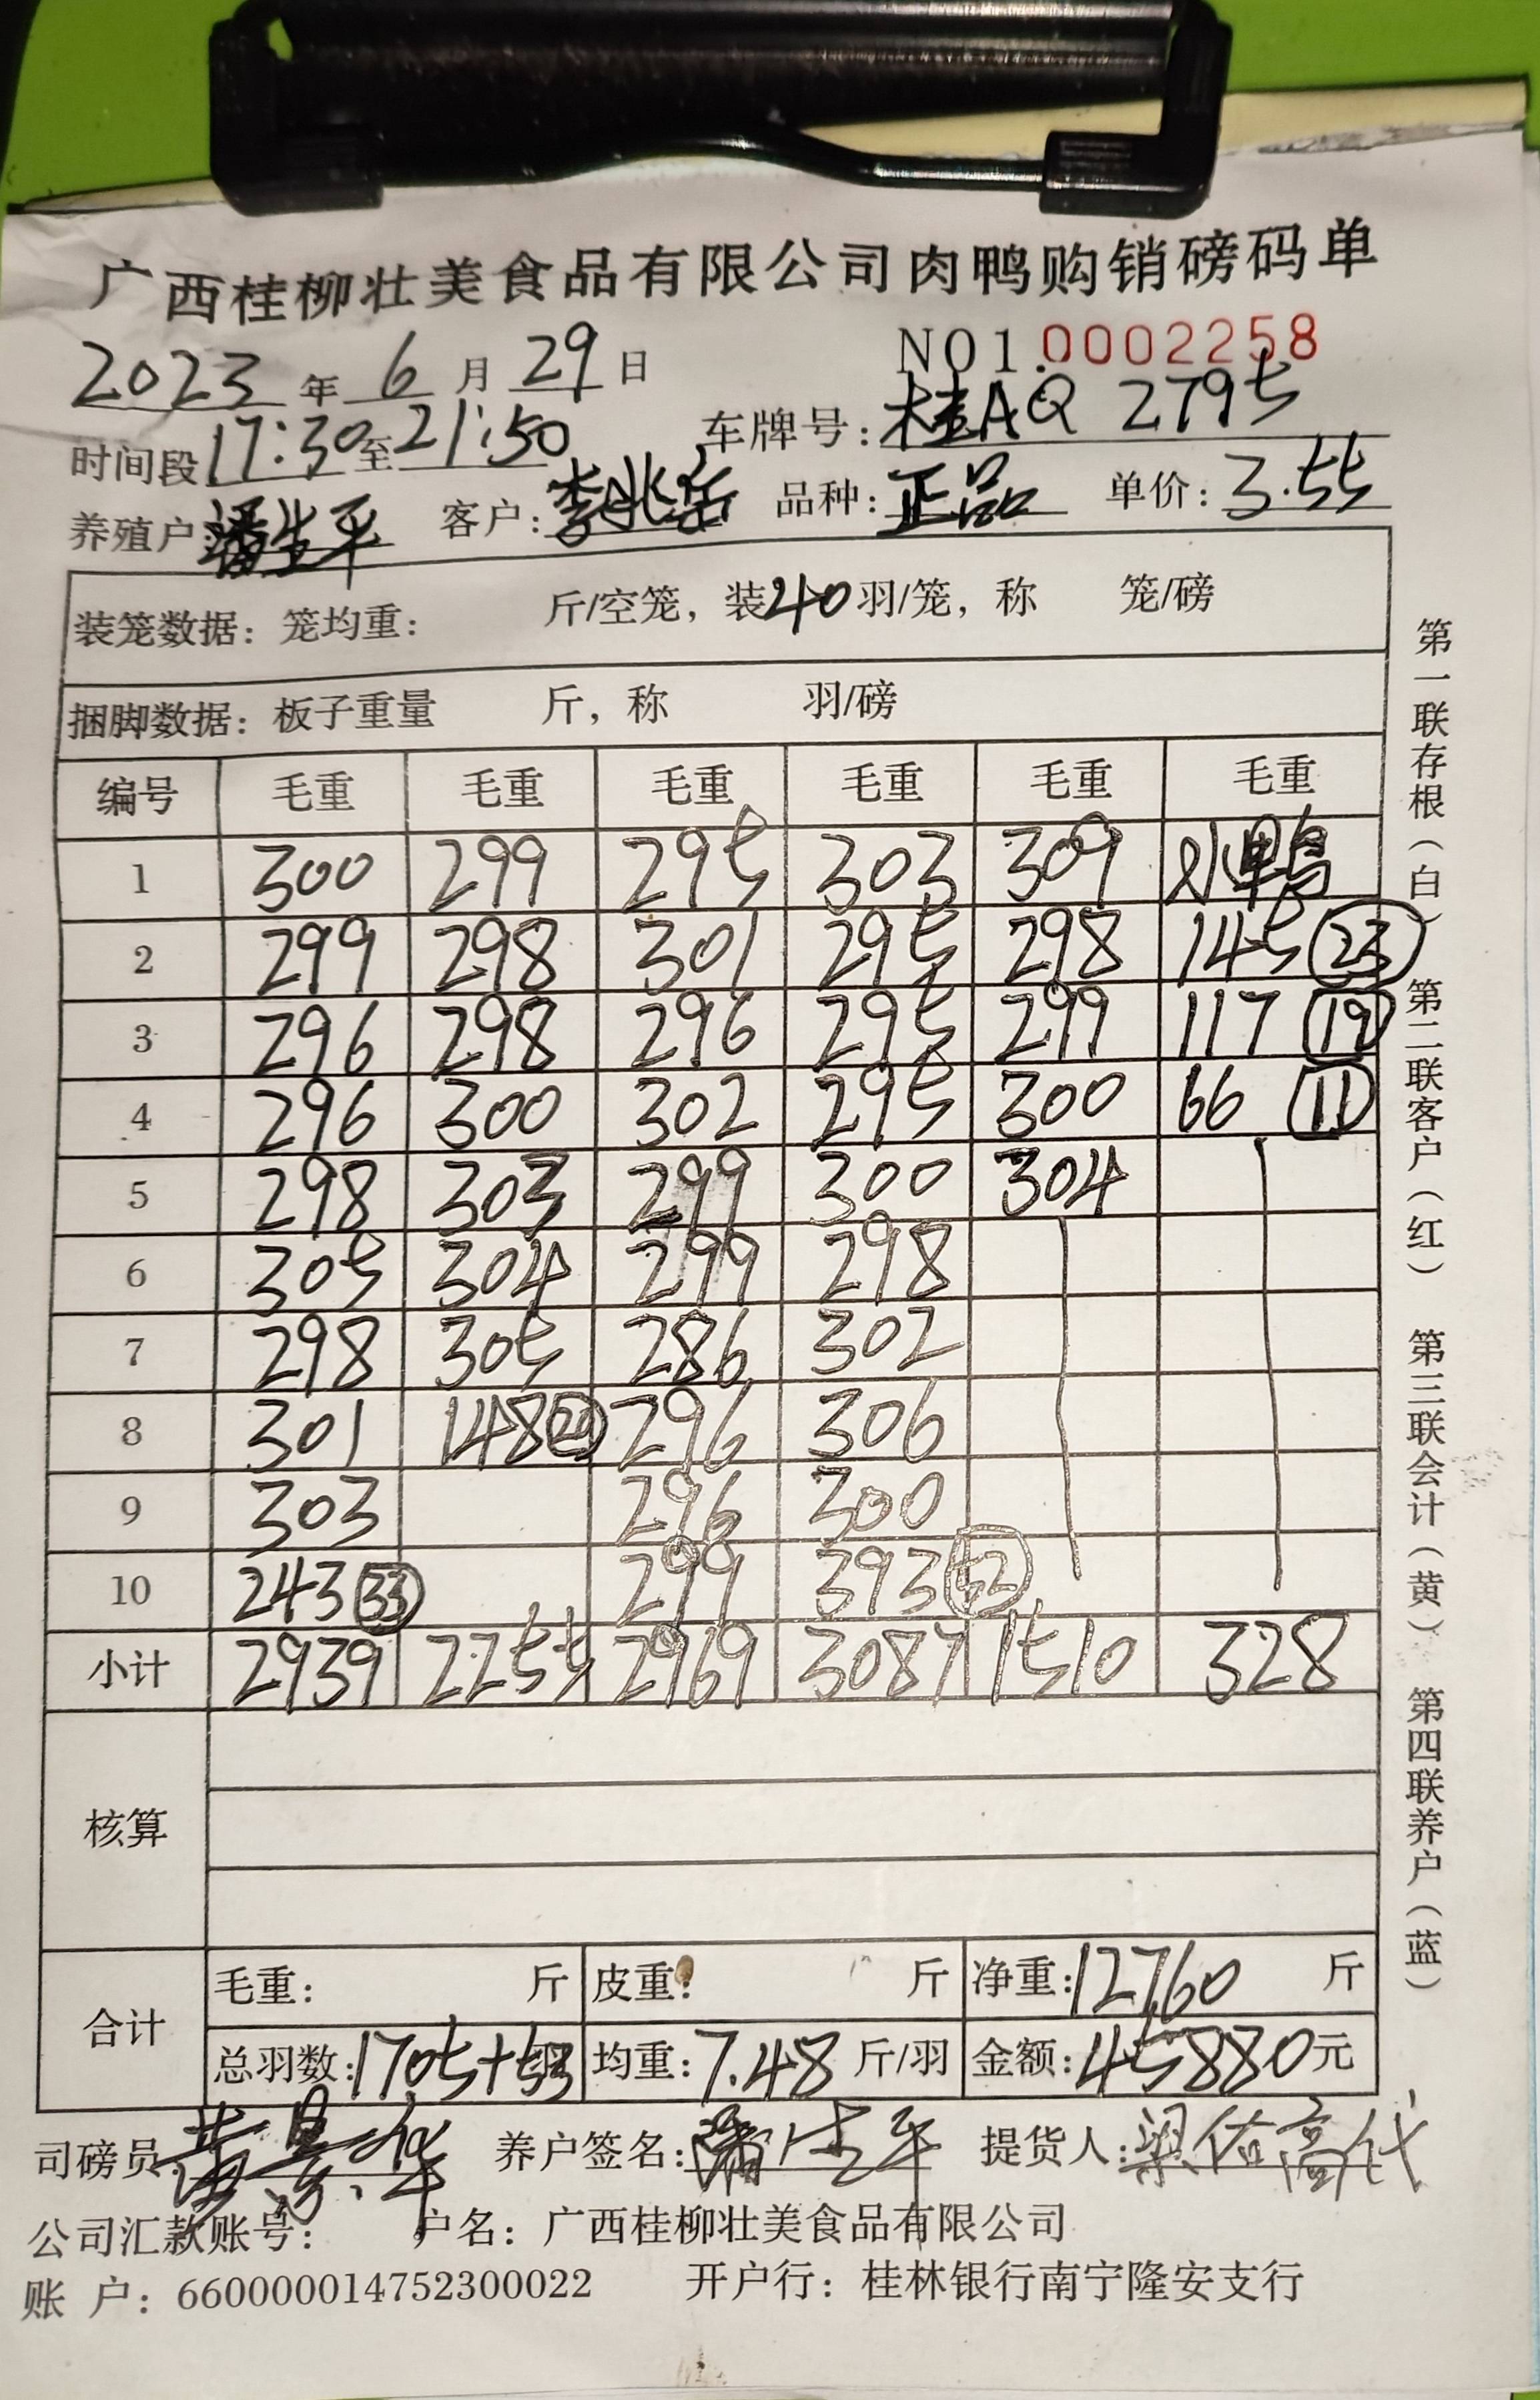 广西桂柳壮美食品有限公司肉鸭购销磅码单
2023 年 6 月 29 日 NO1.0002258
时间段 17:30 至 21:50 车牌号: 桂AQ 2795
养殖户: 潘生平 客户: 李兆岳 品种: 正品 单价: 3.55
装笼数据: 笼均重: 斤/空笼, 装 40 羽/笼, 称 笼/磅
捆脚数据: 板子重量 斤, 称 羽/磅
编号 毛重 毛重 毛重 毛重 毛重 毛重
1 300 299 295 303 309 小鸭
2 299 298 301 295 298 145 23
3 296 298 296 295 299 117 19
4 296 300 302 295 300 66 11
5 298 303 299 300 304
6 305 304 299 298
7 298 305 286 302
8 301 148 20 296 306
9 303 296 300
10 243 33 299 393 52
小计 2939 2255 2969 3087 1510 328
核算
合计 毛重: 斤 皮重: 斤 净重: 12760 斤
总羽数: 1705+53 羽 均重: 7.48 斤/羽 金额: 45880 元
司磅员 养户签名: 潘生平 提货人: 梁佑高代
公司汇款账号: 户名: 广西桂柳壮美食品有限公司
账 户: 660000014752300022 开户行: 桂林银行南宁隆安支行
第一联存根(白) 第二联客户(红) 第三联会计(黄) 第四联养户(蓝)